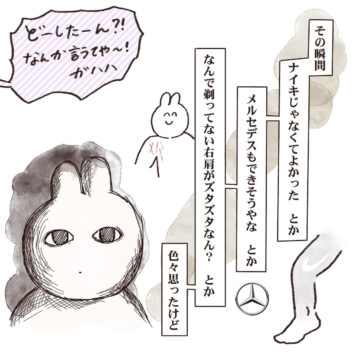 どーしたーん?!
なんか言うてや〜!
ガハハ
その瞬間
ナイキじゃなくてよかった とか
メルセデスもできそうやな とか
なんで剃ってない右肩がズタズタなん? とか
色々思ったけど